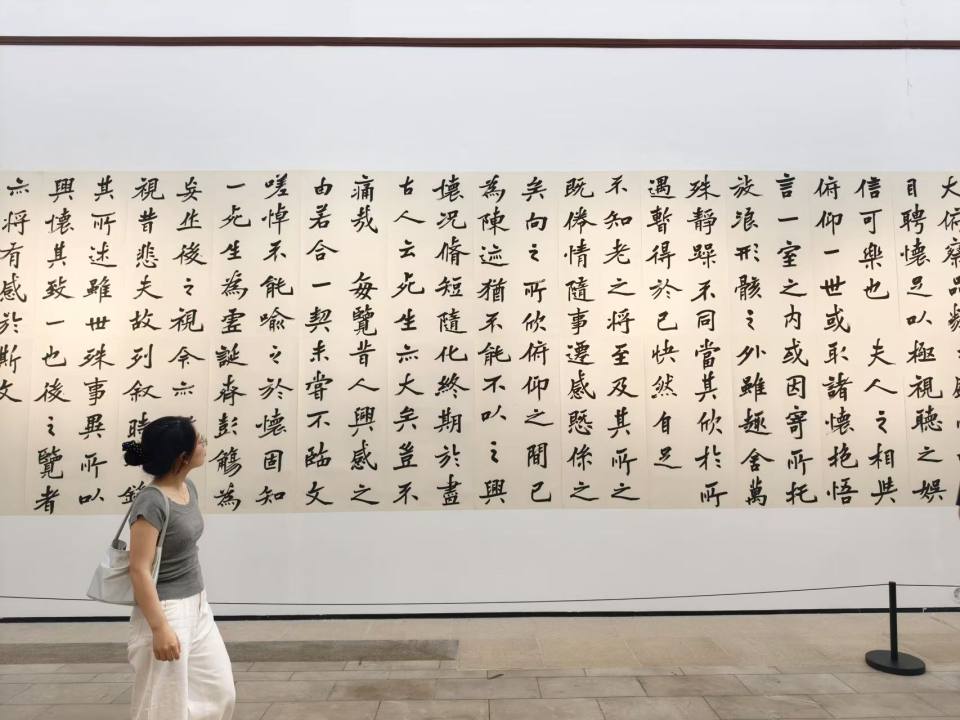 大俯察品
目聘懷足以極視聽之娛
信可樂也 夫人之相與
俯仰一世或取諸懷抱悟
言一室之內或因寄所托
放浪形骸之外雖趣舍萬
殊靜躁不同當其欣於所
遇暫得於己快然自足
不知老之將至及其所之
既倦情隨事遷感慨係之
矣向之所欣俯仰之間已
為陳迹猶不能不以之興
懷況脩短隨化終期於盡
古人云死生亦大矣豈不
痛哉 每覽昔人興感之
由若合一契未嘗不臨文
嗟悼不能喻之於懷固知
一死生為虛誕齊彭殤為
妄作後之視今亦
視昔悲夫故列敘時錄
其所述雖世殊事異所以
興懷其致一也後之覽者
亦將有感於斯文